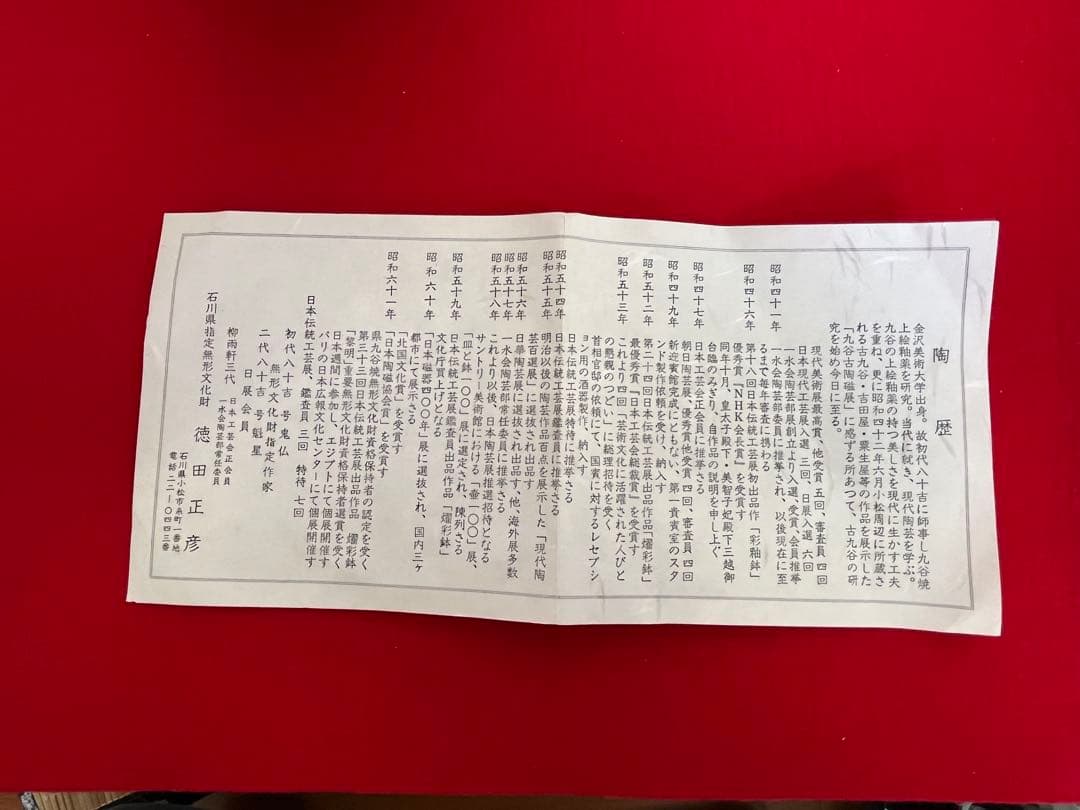 陶歴
金沢美術大学出身。故初代八十吉に師事し九谷焼
上絵釉薬を研究。当代に就き、現代陶芸を学ぶ。
九谷の上絵釉薬の持つ美しさを現代に生かす工夫
を重ね、更に昭和四十二年六月小松周辺に所蔵さ
れる古九谷・吉田屋・粟生屋等の作品を展示した
「九谷古陶磁展」に感ずる所あつて、古九谷の研
究を始め今日に至る。
現代美術展最高賞、他受賞 五回、審査員 四回
日本現代工芸展入選 三回、日展入選 六回
昭和四十一年 一水会陶芸部展創立より入選、受賞、会員推挙
一水会陶芸部委員に推挙され、以後現在に至
るまで毎年審査に携わる
昭和四十六年 第十八回日本伝統工芸展初出品作「彩釉鉢」
優秀賞『NHK会長賞』を受賞す
同年十月、皇太子殿下・美智子妃殿下三越御
台臨のみぎり、自作品の説明を申し上ぐ
昭和四十七年 日本工芸会正会員に推挙さる
朝日陶芸展、優秀賞他受賞 四回、審査員 四回
昭和四十九年 新迎賓館完成にともない、第一貴賓室のスタ
ンド製作依頼を受け、納入す
昭和五十二年 第二十四回日本伝統工芸展出品作品「燿彩鉢」
最優秀賞『日本工芸会総裁賞』を受賞す
昭和五十三年 これより四回「芸術文化に活躍された人びと
の懇親のつどい」に総理招待を受く
首相官邸の依頼にて、国賓に対するレセプシ
ョン用の酒器製作、納入す
日本伝統工芸展特待に推挙さる
昭和五十四年 日本伝統工芸展鑑査員に推挙さる
昭和五十五年 明治以後の陶芸作品百点を展示した「現代陶
芸百選展」に選抜され出品す
昭和五十六年 日華陶芸展に選抜され出品す、他、海外展多数
昭和五十七年 一水会陶芸部常任委員に推挙さる
昭和五十八年 これより以後、日本陶芸展推選招待となる
サントリー美術館における「壷一〇〇」展、
「皿と鉢一〇〇」展に選定され、陳列さる
昭和五十九年 日本伝統工芸展鑑査員出品作品「燿彩鉢」
文化庁買上げとなる
昭和六十年 「日本磁器四〇〇年」展に選抜され、国内三ヶ
都市にて展示さる
「北国文化賞」を受賞す
昭和六十一年 「日本陶磁協会賞」を受賞す
県九谷焼無形文化財資格保持者の認定を受く
第三十三回日本伝統工芸展出品作品 燿彩鉢
「黎明」重要無形文化財資格保持者選賞を受く
日本週間に参加し、エジプトにて個展開催す
パリの日本広報文化センターにて個展開催す
日本伝統工芸展、鑑査員 三回 特待 七回
初代八十吉 号鬼仏
無形文化財指定作家
二代八十吉 号魁星
日展会員
柳雨軒三代 日本工芸会正会員
一水会陶芸部常任委員
石川県指定無形文化財 徳田正彦
石川県小松市糸町一番地
電話 二二-〇四四三番